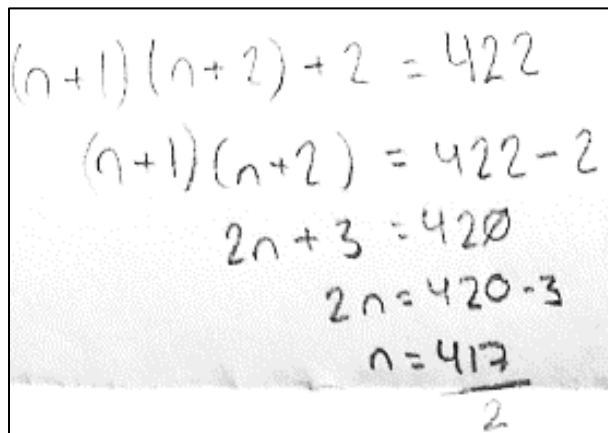 (n+1)(n+2)+2 = 422
(n+1)(n+2) = 422-2
2n+3 = 420
2n = 420-3
n = 417
2